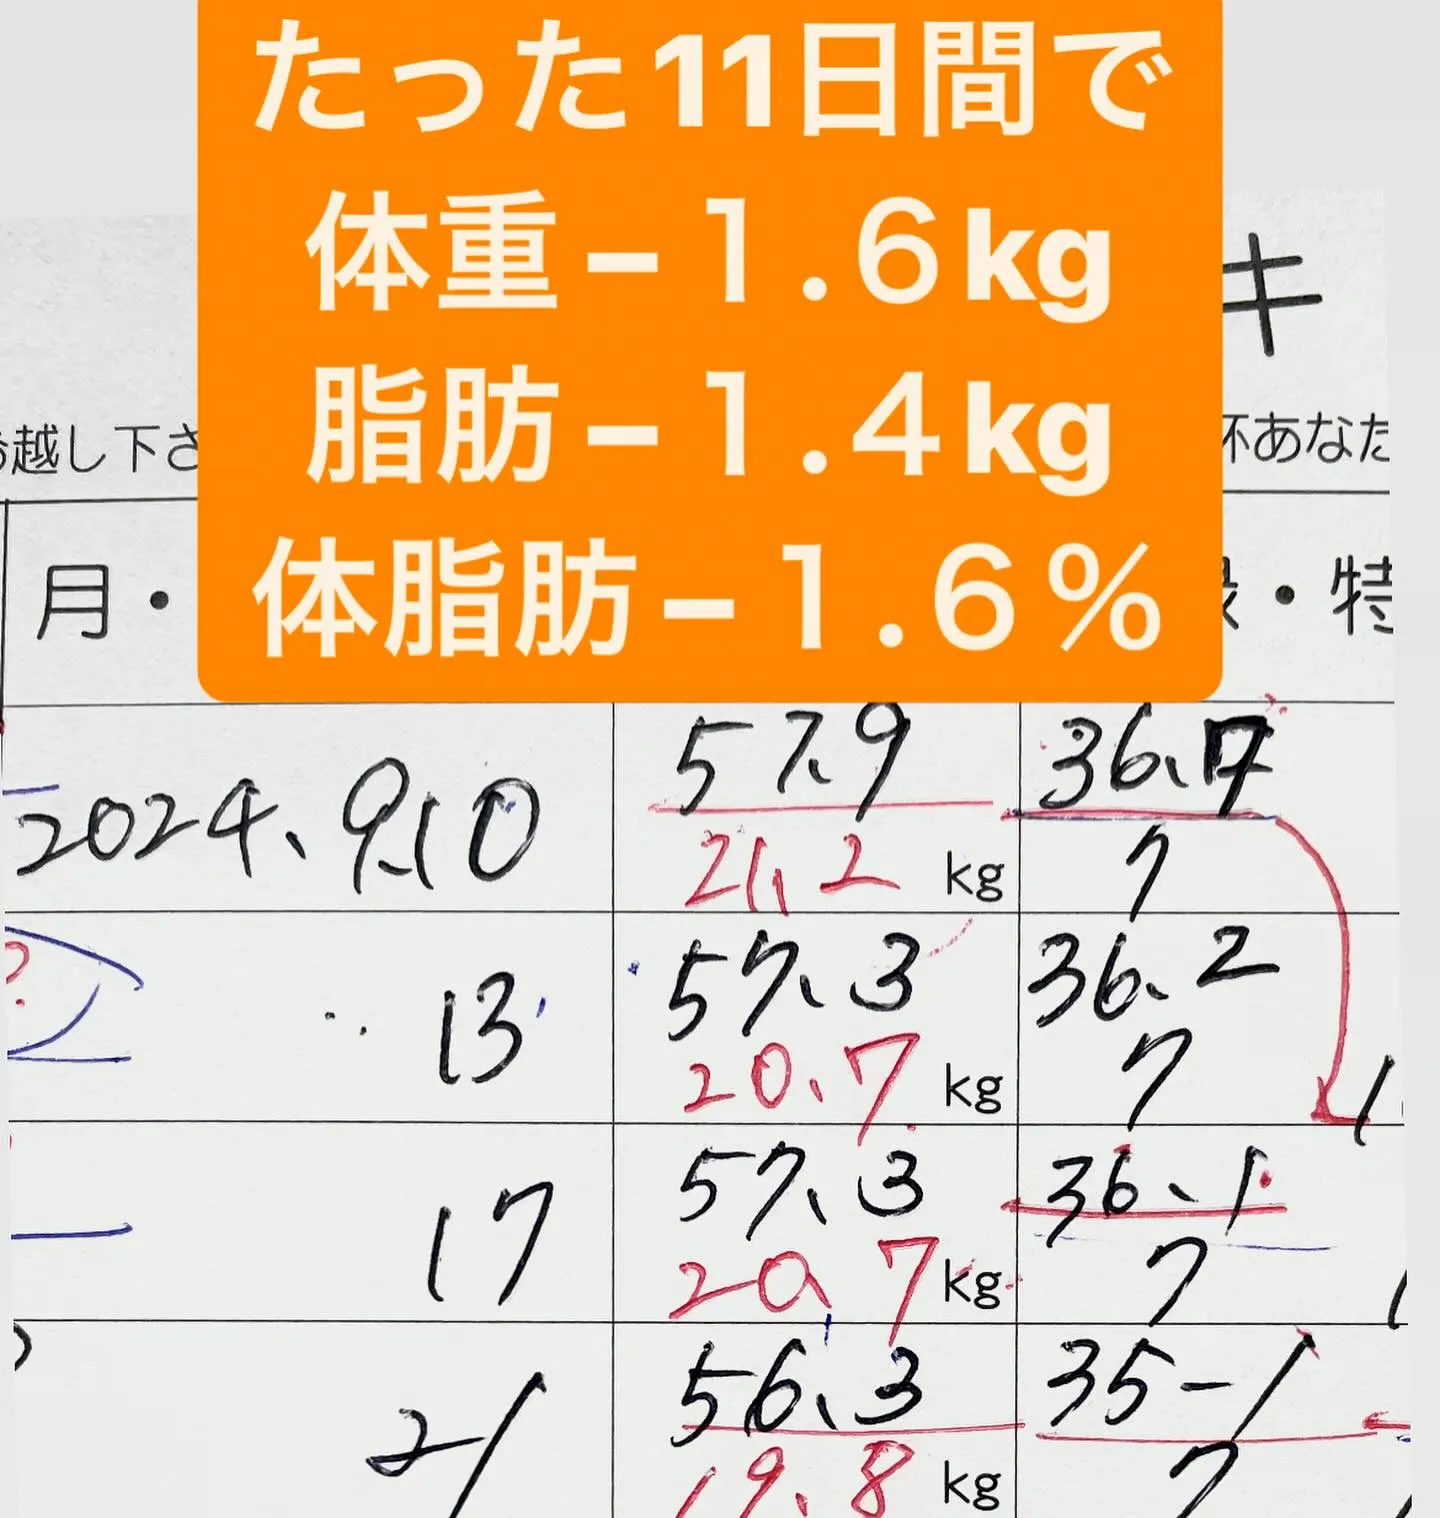 たった11日間で
体重－１.６kg
脂肪－１.４kg
体脂肪－１.６％
キ
越し下さ
あなた
月・
・特
57.9 36.7
2024.9.10
21.2 kg 7
57.3 36.2
13
20.7 kg 7
57.3 36.1
17
20.7 kg 7
56.3 35-1
21
19.8 kg 7